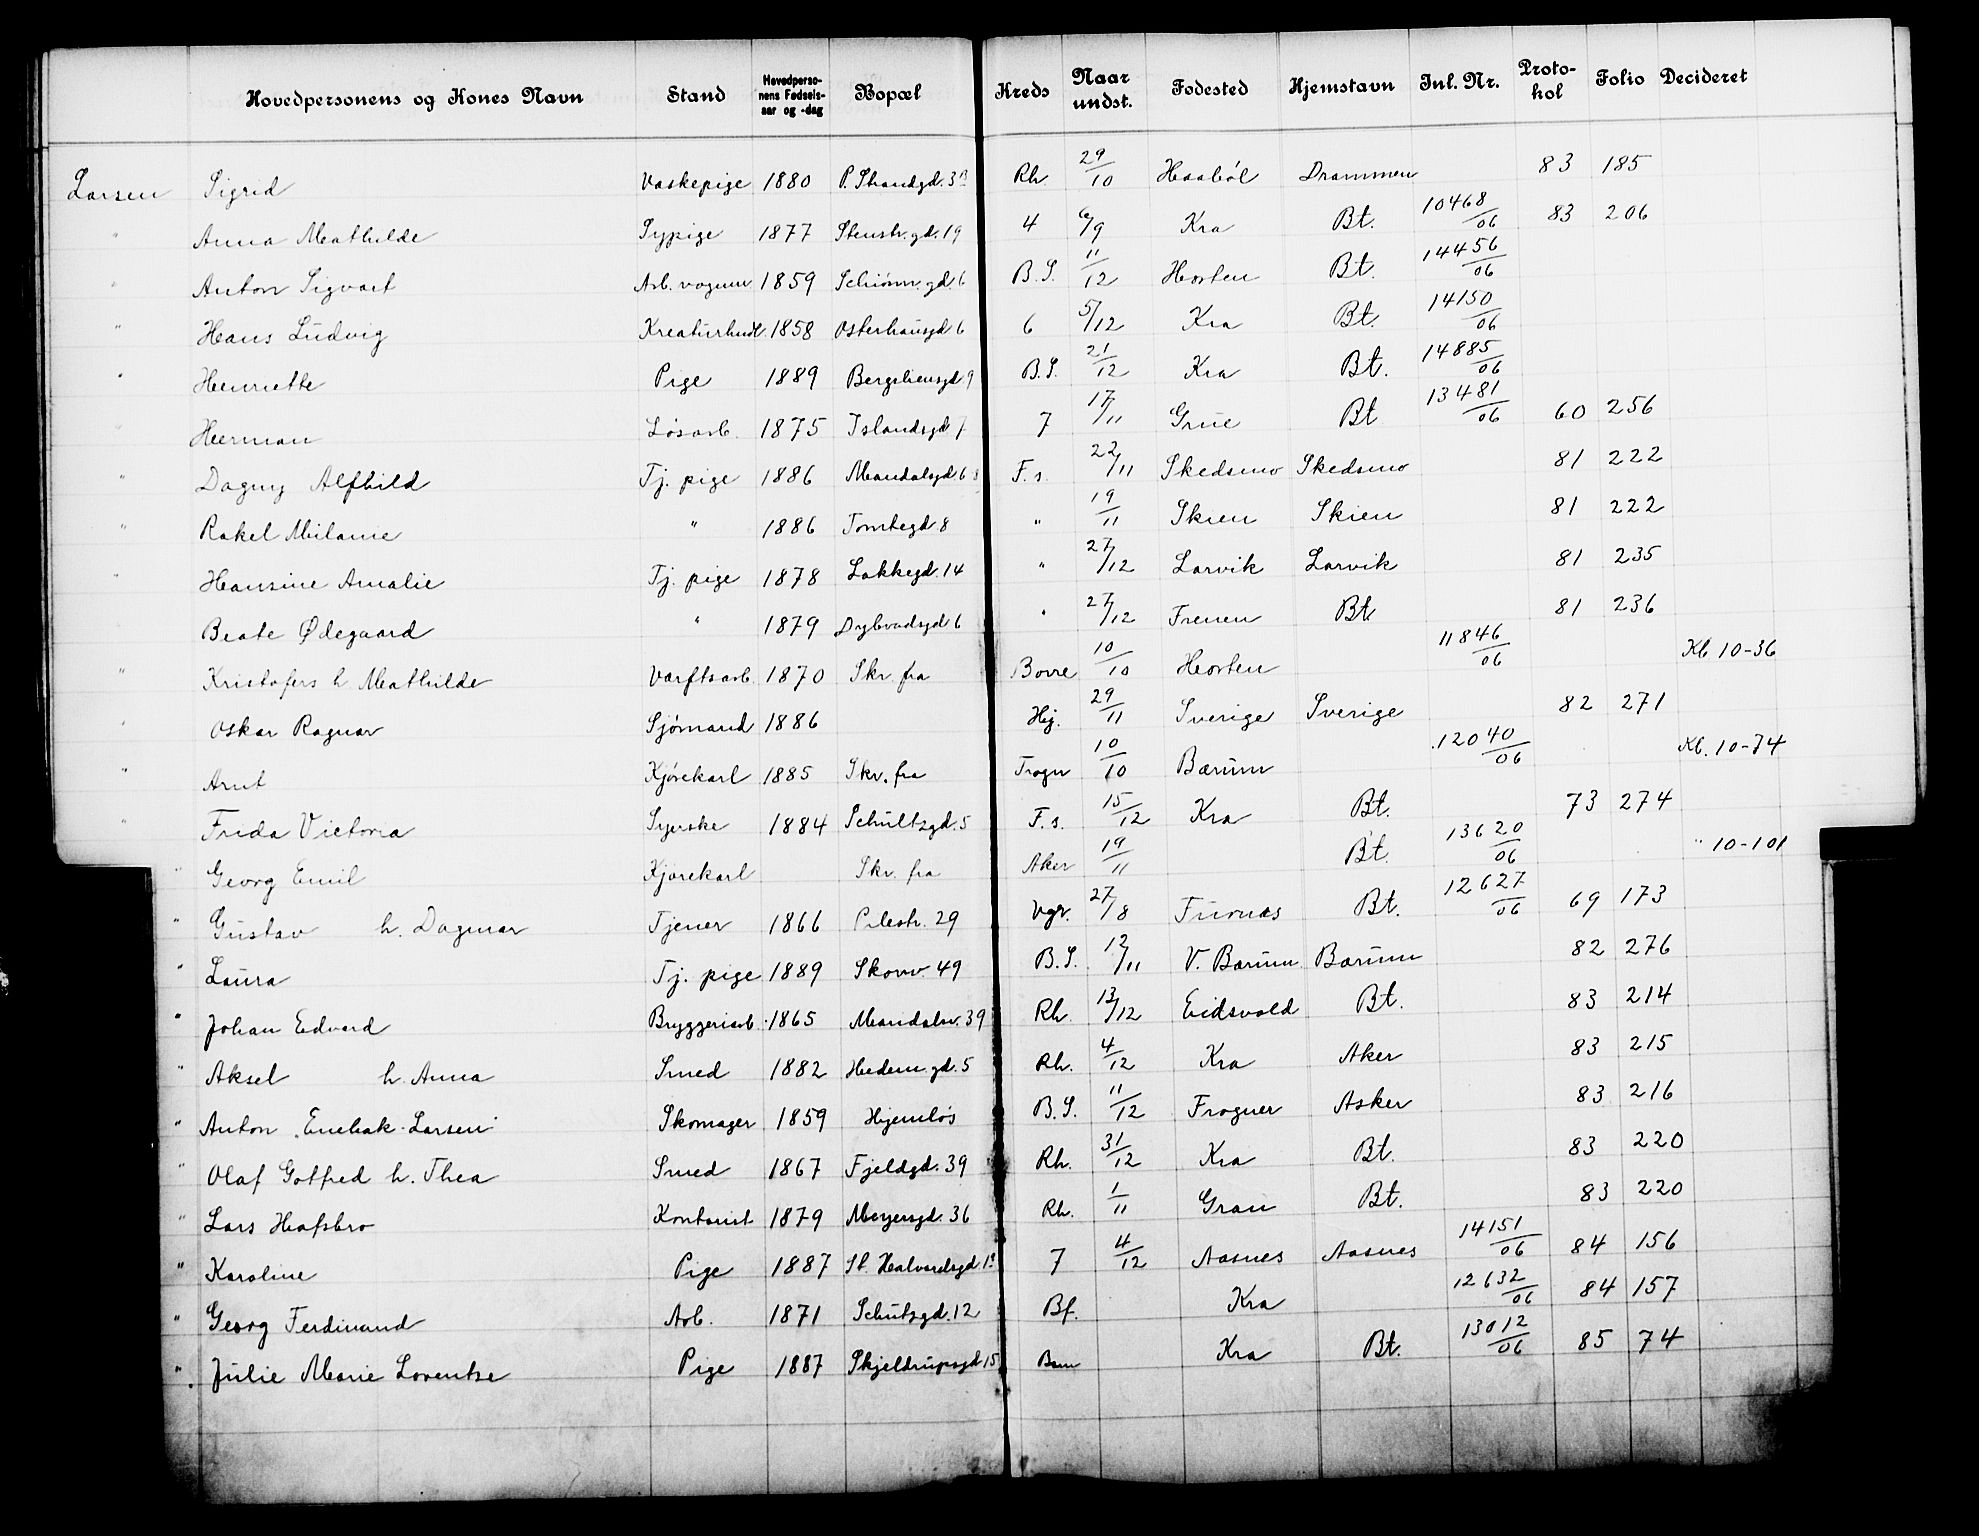 Hovedpersonens og Kones Navn Stand Hovedpersonens Fødselsaar og -dag Bopæl Kreds Naar undst. Fødested Hjemstavn Inl. Nr. Protokol Folio Decideret
Larsen Sigrid Vaskepige 1880 P. Strandgd. 3 B Rh. 29/10 Haabøl Drammen 83 185
" Anna Mathilde Sypige 1877 Stenstr. gd. 19 4 6/9 Kra Bt. 10468/06 83 206
" Anton Sigvart Arb. vognm. 1859 Schiønn. gd. 6 B. S. 11/12 Horten Bt. 14456/06
" Hans Ludvig Kreaturhndl. 1858 Osterhausgd 6 6 5/12 Kra Bt. 14150/06
" Henriette Pige 1889 Bergsliensgd 9 B. S. 21/12 Kra Bt. 14885/06
" Herman Løsarb. 1875 Islandsgd 7 7 17/11 Grue Bt 13481/06 60 256
" Dagny Alfhild Tj. pige 1886 Mandalsgd. 6 F. s. 22/11 Skedsmo Skedsmo 81 222
" Rakel Milanie " 1886 Tomtegd 8 " 19/11 Skien Skien 81 222
" Hansine Amalie Tj. pige 1878 Lakkegd. 14 " 27/12 Larvik Larvik 81 235
" Beate Ødegaard " 1879 Dybvadsgd 6 " 27/12 Frenen Bt. 81 236
" Kristofers h. Mathilde Værftsarb. 1870 Skr. fra Borre 10/10 Horten 11846/06 Kb. 10-36
" Oskar Ragnar Sjømand 1886 Hj. 29/11 Sverige Sverige 82 271
" Arnt Kjørekarl 1885 Skr. fra Trogn 10/10 Bærum 12040/06 Kb. 10-74
" Frida Victoria Syerske 1884 Schultzgd. 5 F. s. 15/12 Kra Bt. 73 274
" Georg Emil Kjørekarl Skr. fra Aker 19/11 Bt. 13620/06 " 10-101
" Gustav h. Dagmar Tjener 1866 Pilestr. 29 Vgr. 27/8 Furnæs Bt. 12627/06 69 173
" Laura Tj. pige 1889 Skovv. 49 B. S. 12/11 V. Bærum Bærum 82 276
" Johan Edvard Bryggeriarb. 1865 Mandalsv. 39 Rh. 13/12 Eidsvold Bt. 83 214
" Aksel h. Anna Smed 1882 Hedem. gd. 5 Rh. 4/12 Kra Aker 83 215
" Anton Enebak-Larsen Skomager 1859 Hjemløs B. S. 11/12 Frogner Asker 83 216
" Olaf Gotfred h. Thea Smed 1867 Fjeldgd. 39 Rh. 31/12 Kra Bt. 83 220
" Lars Hafsbro Kontorist 1879 Meyersgd. 36 Rh. 1/11 Gran Bt. 83 220
" Karoline Pige 1887 St. Halvardsgd 7 4/12 Aasnes Aasnes 14151/06 84 156
" Georg Ferdinand Arb. 1871 Schutzgd. 12 Bf. Kra 12632/06 84 157
" Julie Marie Loventse Pige 1887 Skjeldrupsgd 15 Kra Bt. 13012/06 85 74